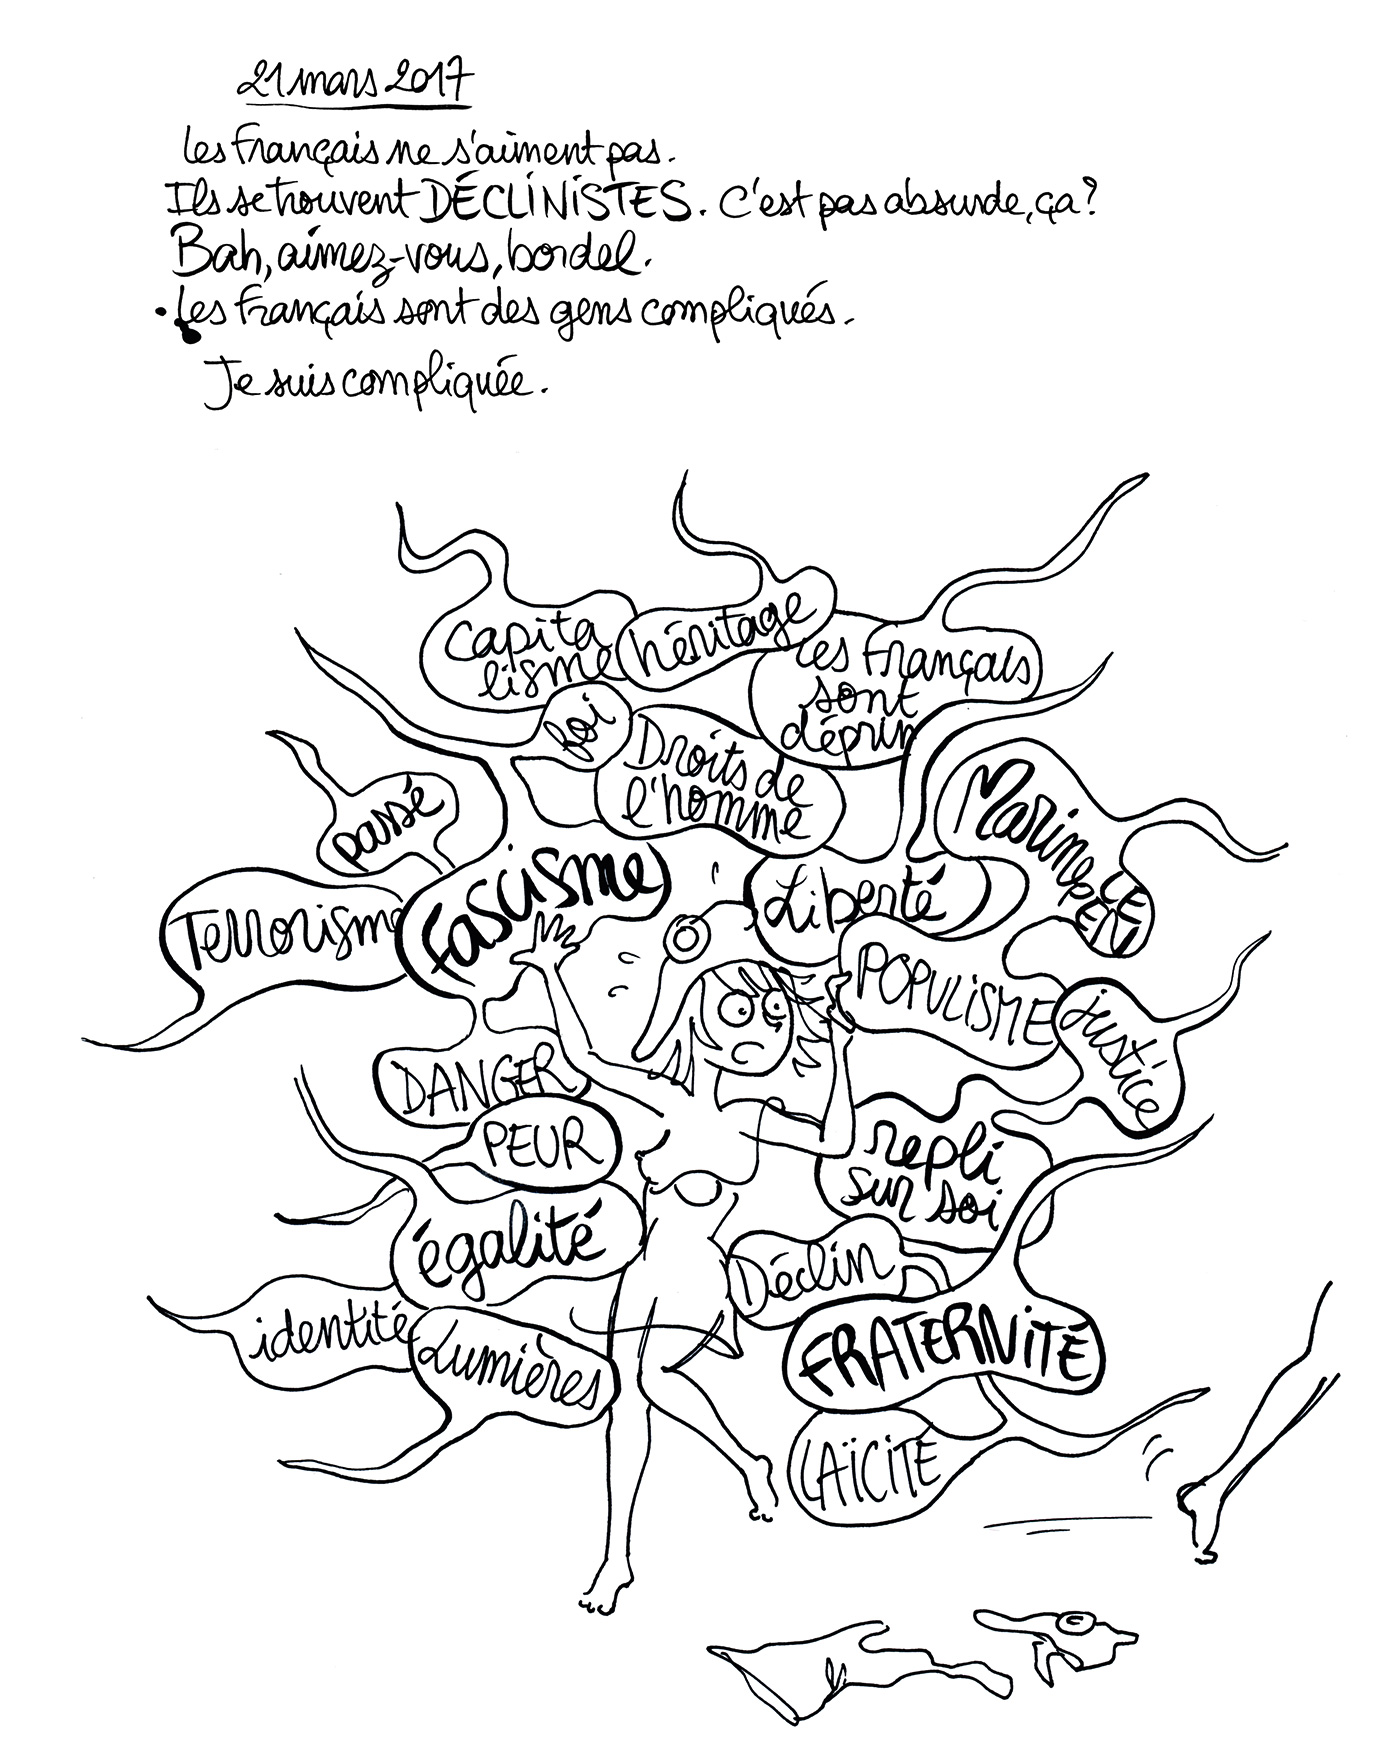 21 mars 2017
Les Français ne s'aiment pas.
Ils se trouvent DÉCLINISTES. C'est pas absurde, ça?
Bah, aimez-vous, bordel.
. Les Français sont des gens compliqués.
Je suis compliquée.
capita
lisme
héritage
les Français
sont
déprim
foi
Droits de
l'homme
passé
Marine
LE
PEN
Terrorisme
Fascisme
Liberté
POPULISME
justice
DANGER
PEUR
repli
sur soi
égalité
Déclin
identité
Lumières
FRATERNITÉ
LAÏCITÉ